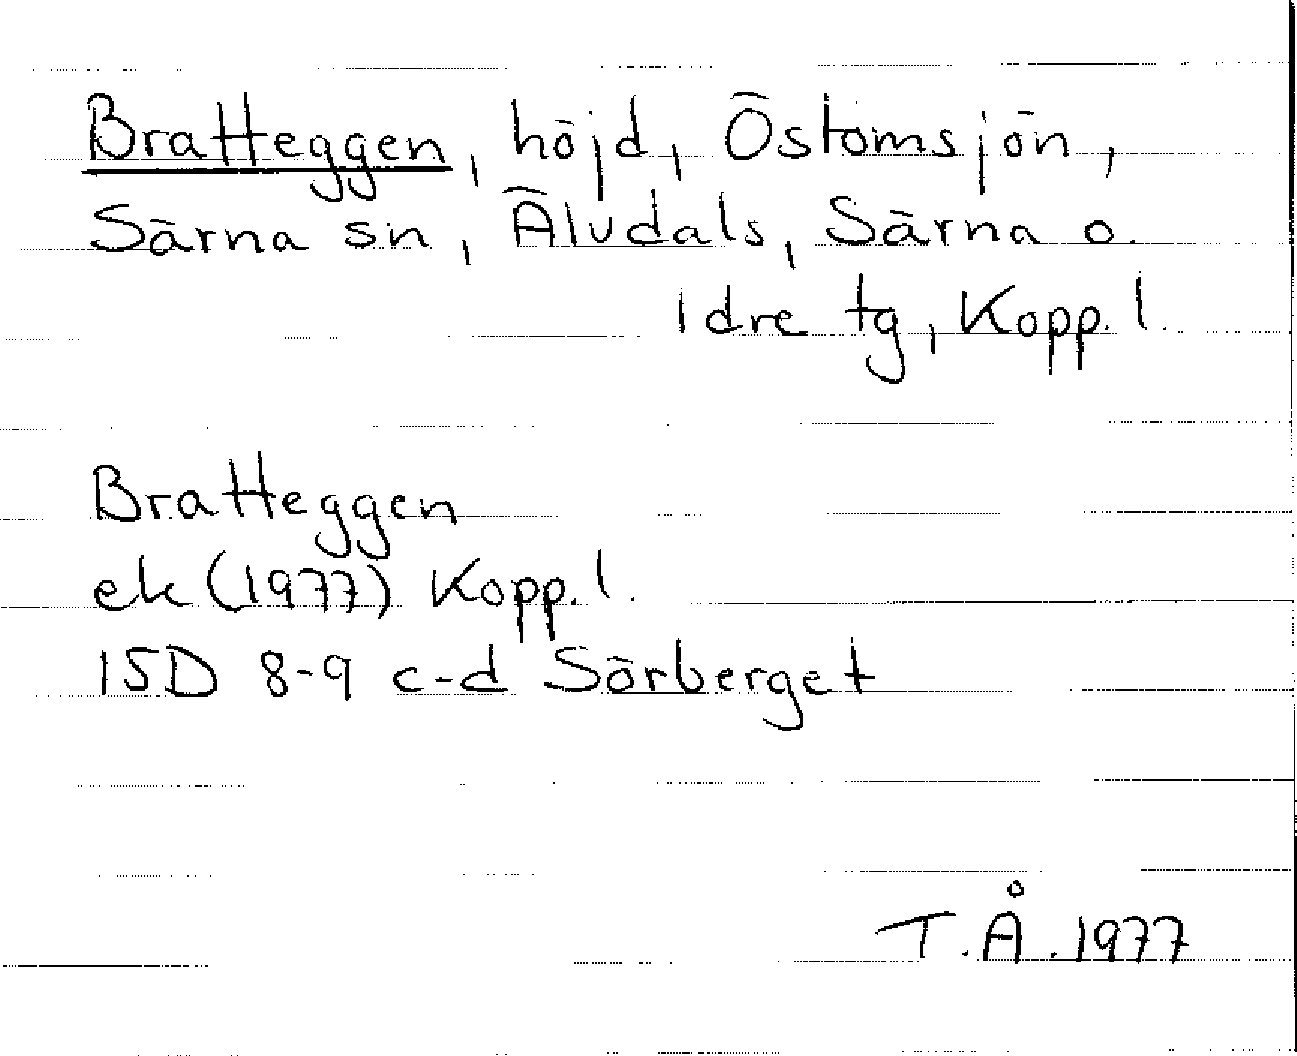 Bratteggen, höjd, Östomsjön,
Särna sn, Älvdals, Särna o.
Idre tg, Kopp. l.
Bratteggen
ek (1977) Kopp. l.
15D 8-9 c-d Sörberget
T.Å. 1977